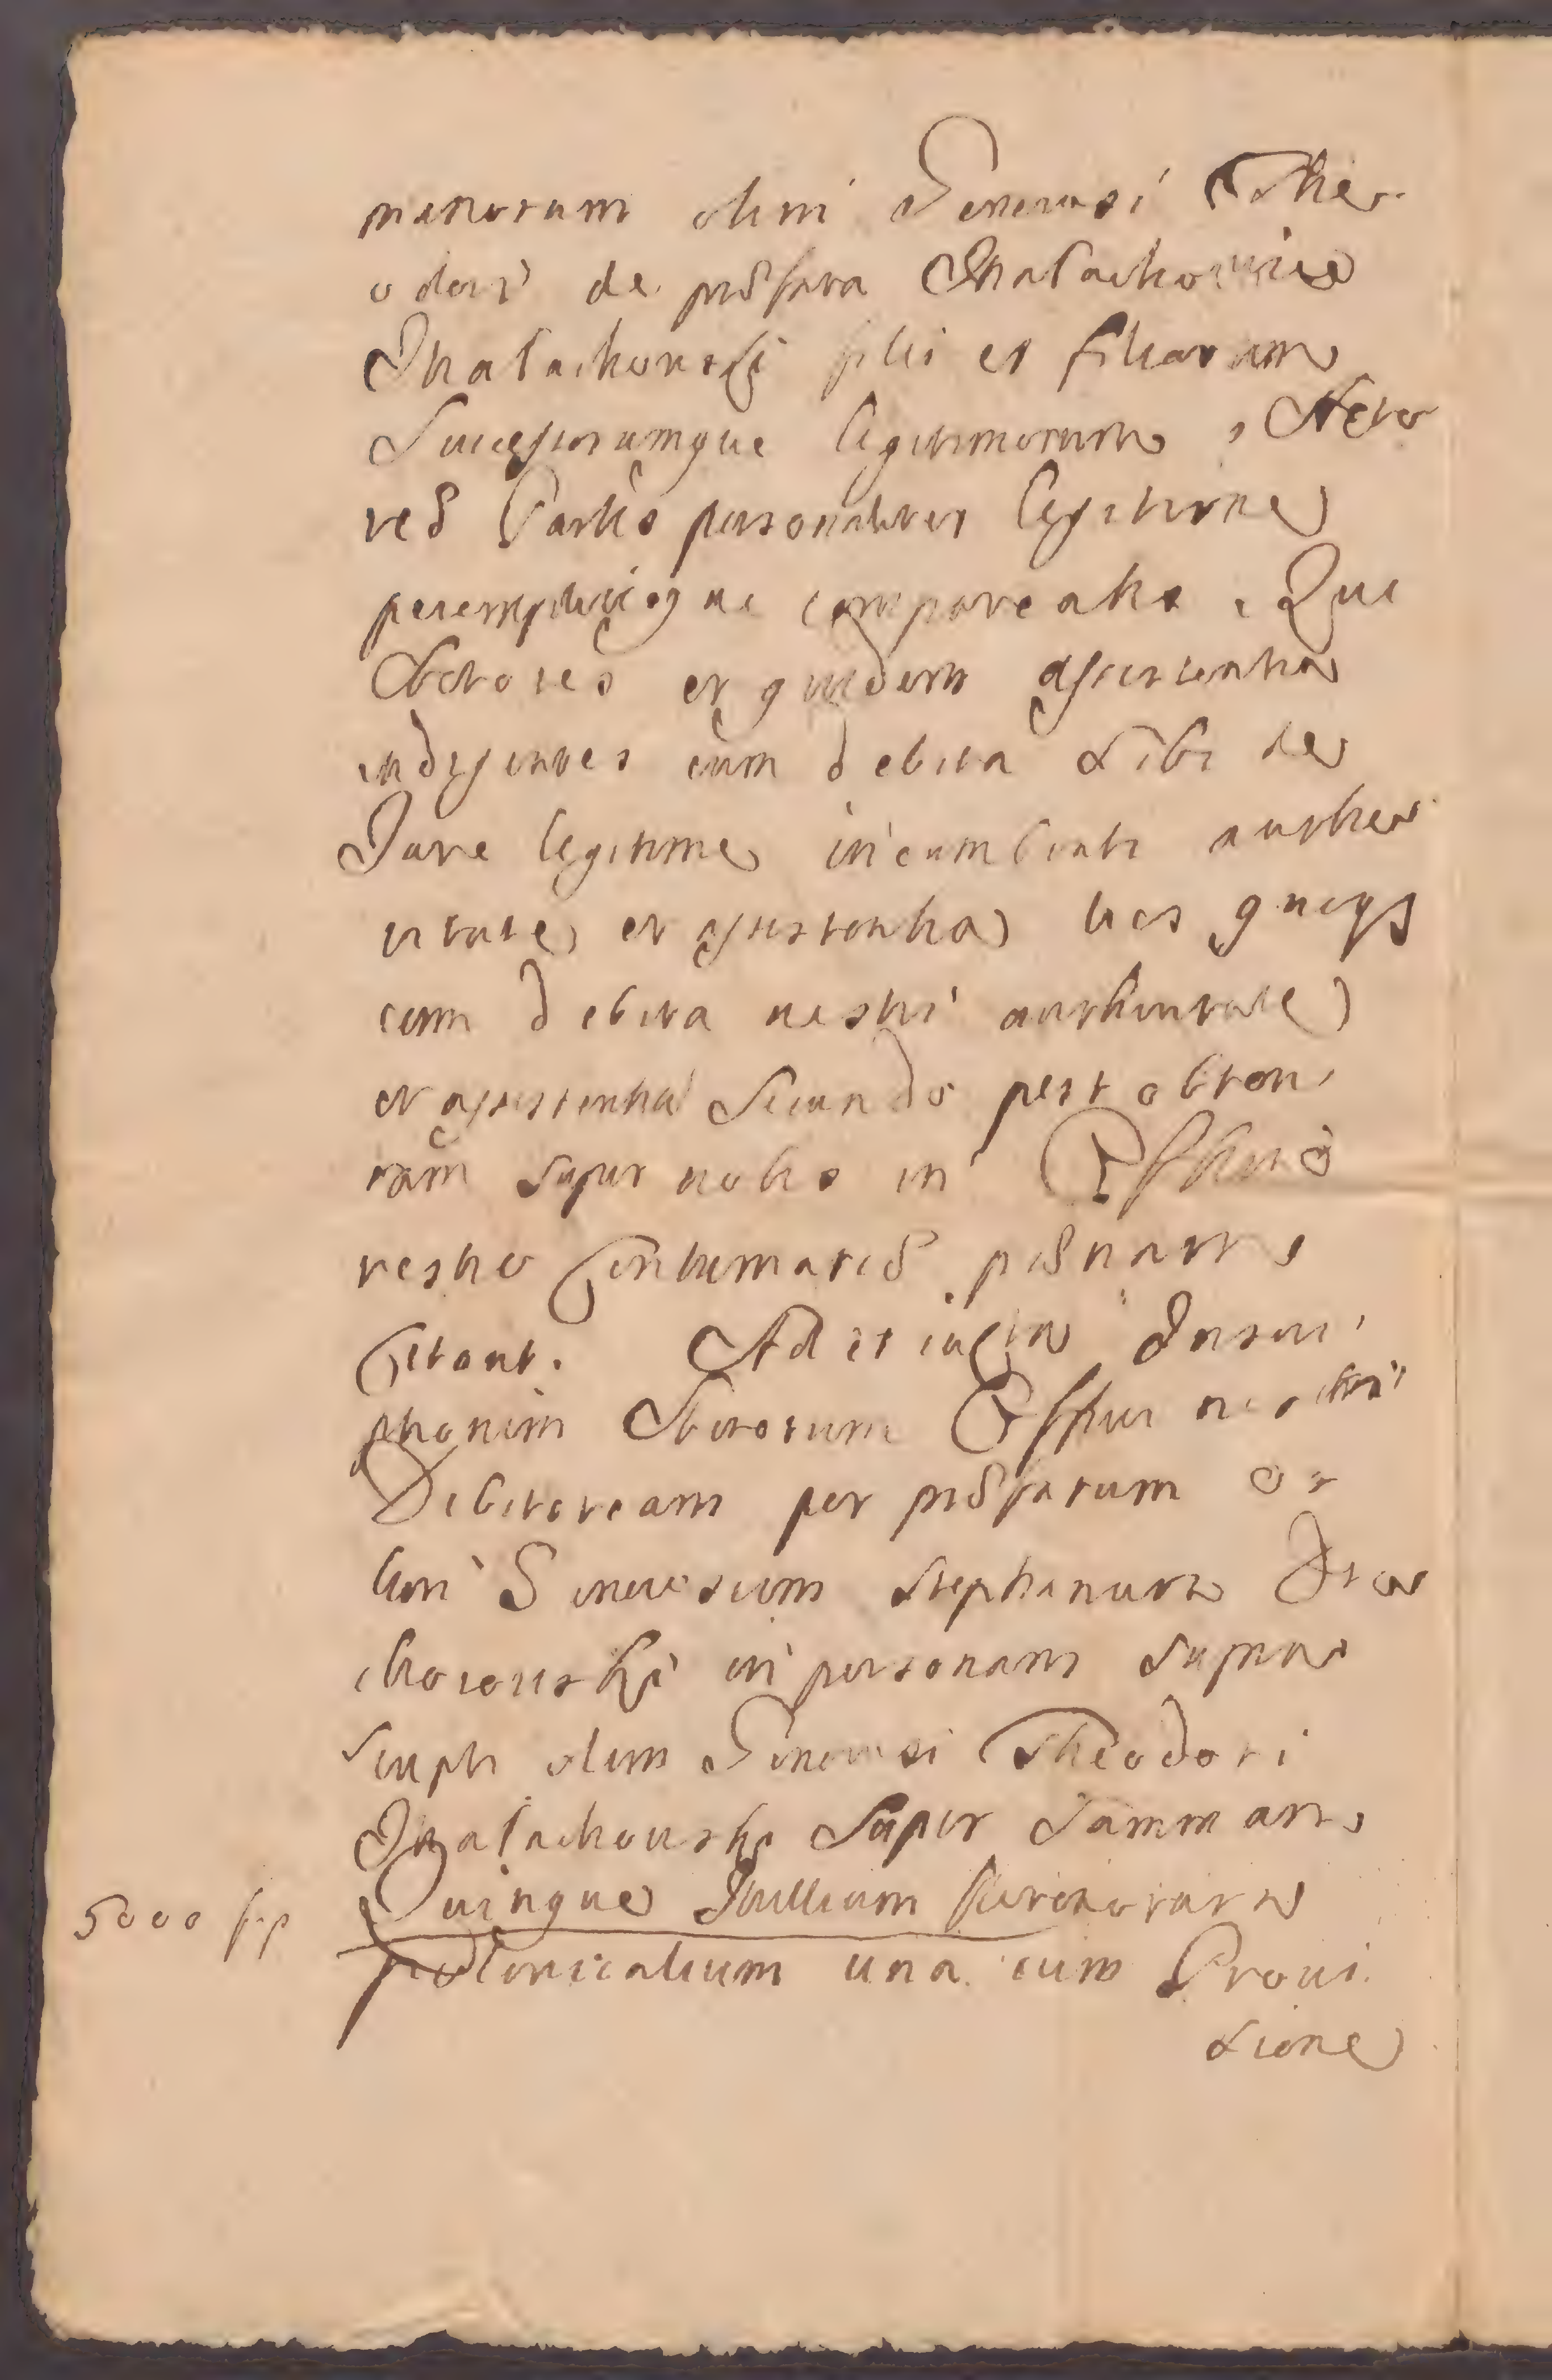 minorum olim Generosi Theo
odori de præfata Małachowice
Małachowski filii et filiarum
Successorumque legitimorum, Acto
res Partis personaliter legitime
peremptorieque compareatis. Qui
Actores et quidem assistentia
indigentes cum debita Sibi de
Jure legitime incumbenti autho
ritate, et assistentia hos quoqs
cum debita nostri authoritate
et assistentia Secundo post obten
tam super nobis in
vestro Contumatiæ
Citant. Ad et iuxta Inscri
ptionem
Debitoream per præfatum
lim Generosum Stephanum
in personam supra
scripti olim Generosi Theodori
Małachowski super Summam
5000 fp Quinque Millium florenorum
polonicalium una cum Provi
sione